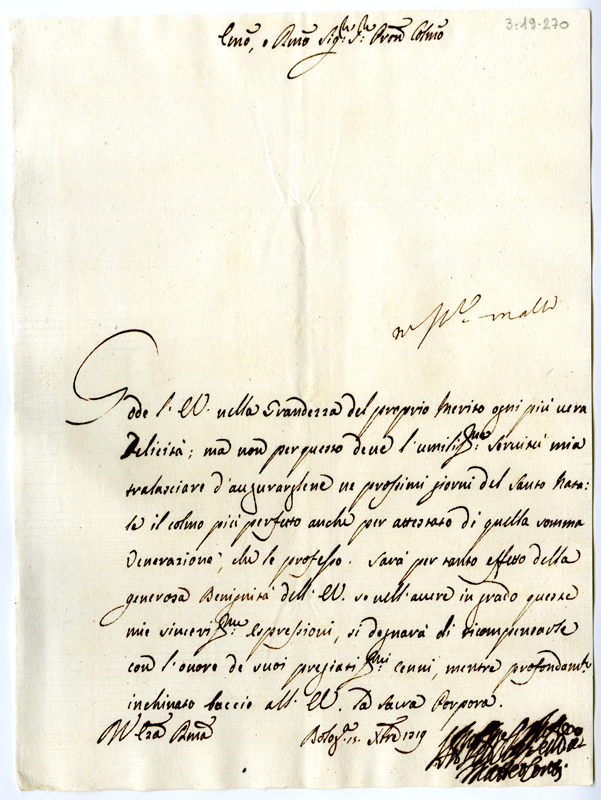 3:19-270
Emo, e Rmo Sigr. Sr. Pron Colmo
Gode l'EV. nella Grandezza del proprio Merito ogni più vera
Felicità; ma non per questo deve l'umilissme. Servitù mia
tralasciare d'augurarglene ne prossimi giorni del Santo Nata:
le il colmo più perfetto anche per attestato di quella somma
Venerazione, che le professo. Sarà per tanto effetto della
generosa Benignità dell'EV. se nell'avere in grado queste
mie sincerissme. Espressioni, si degnarà di ricompensarle
con l'onore de suoi pregiatissmi. Cenni, mentre profondamte.
inchinato baccio all'EV. la Sacra Porpora.
Bologa. 15. Xbre 1719